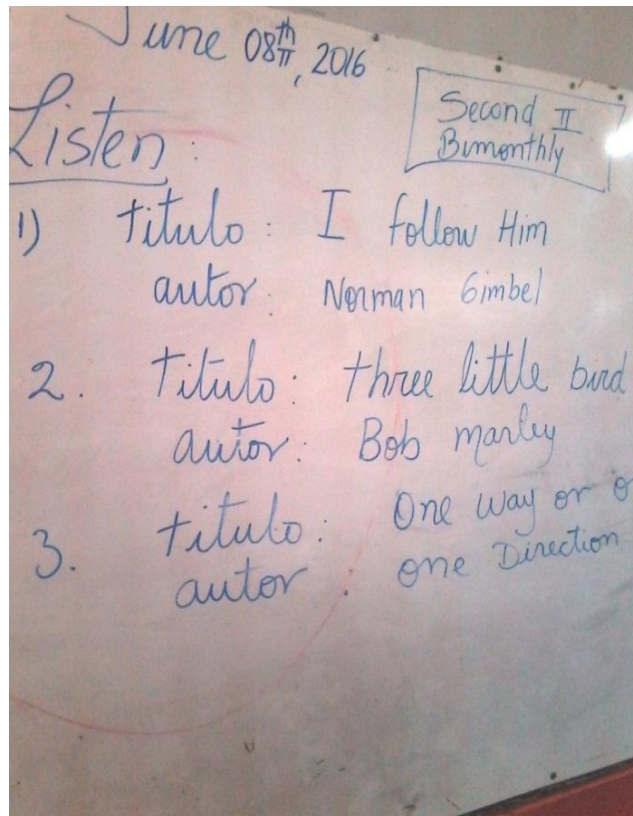 June 08th, 2016
Second II
Bimonthly
Listen:
1) titulo: I follow Him
autor: Norman Gimbel
2. titulo: three little bird
autor: Bob marley
3. titulo: One way or
autor: one Direction